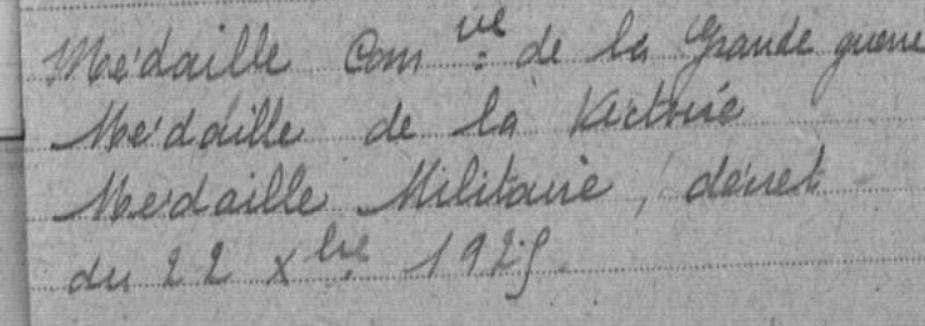 Médaille Com ve de la Grande guerre
Médaille de la Victoire
Médaille Militaire, décret
du 22 Xbre 1925